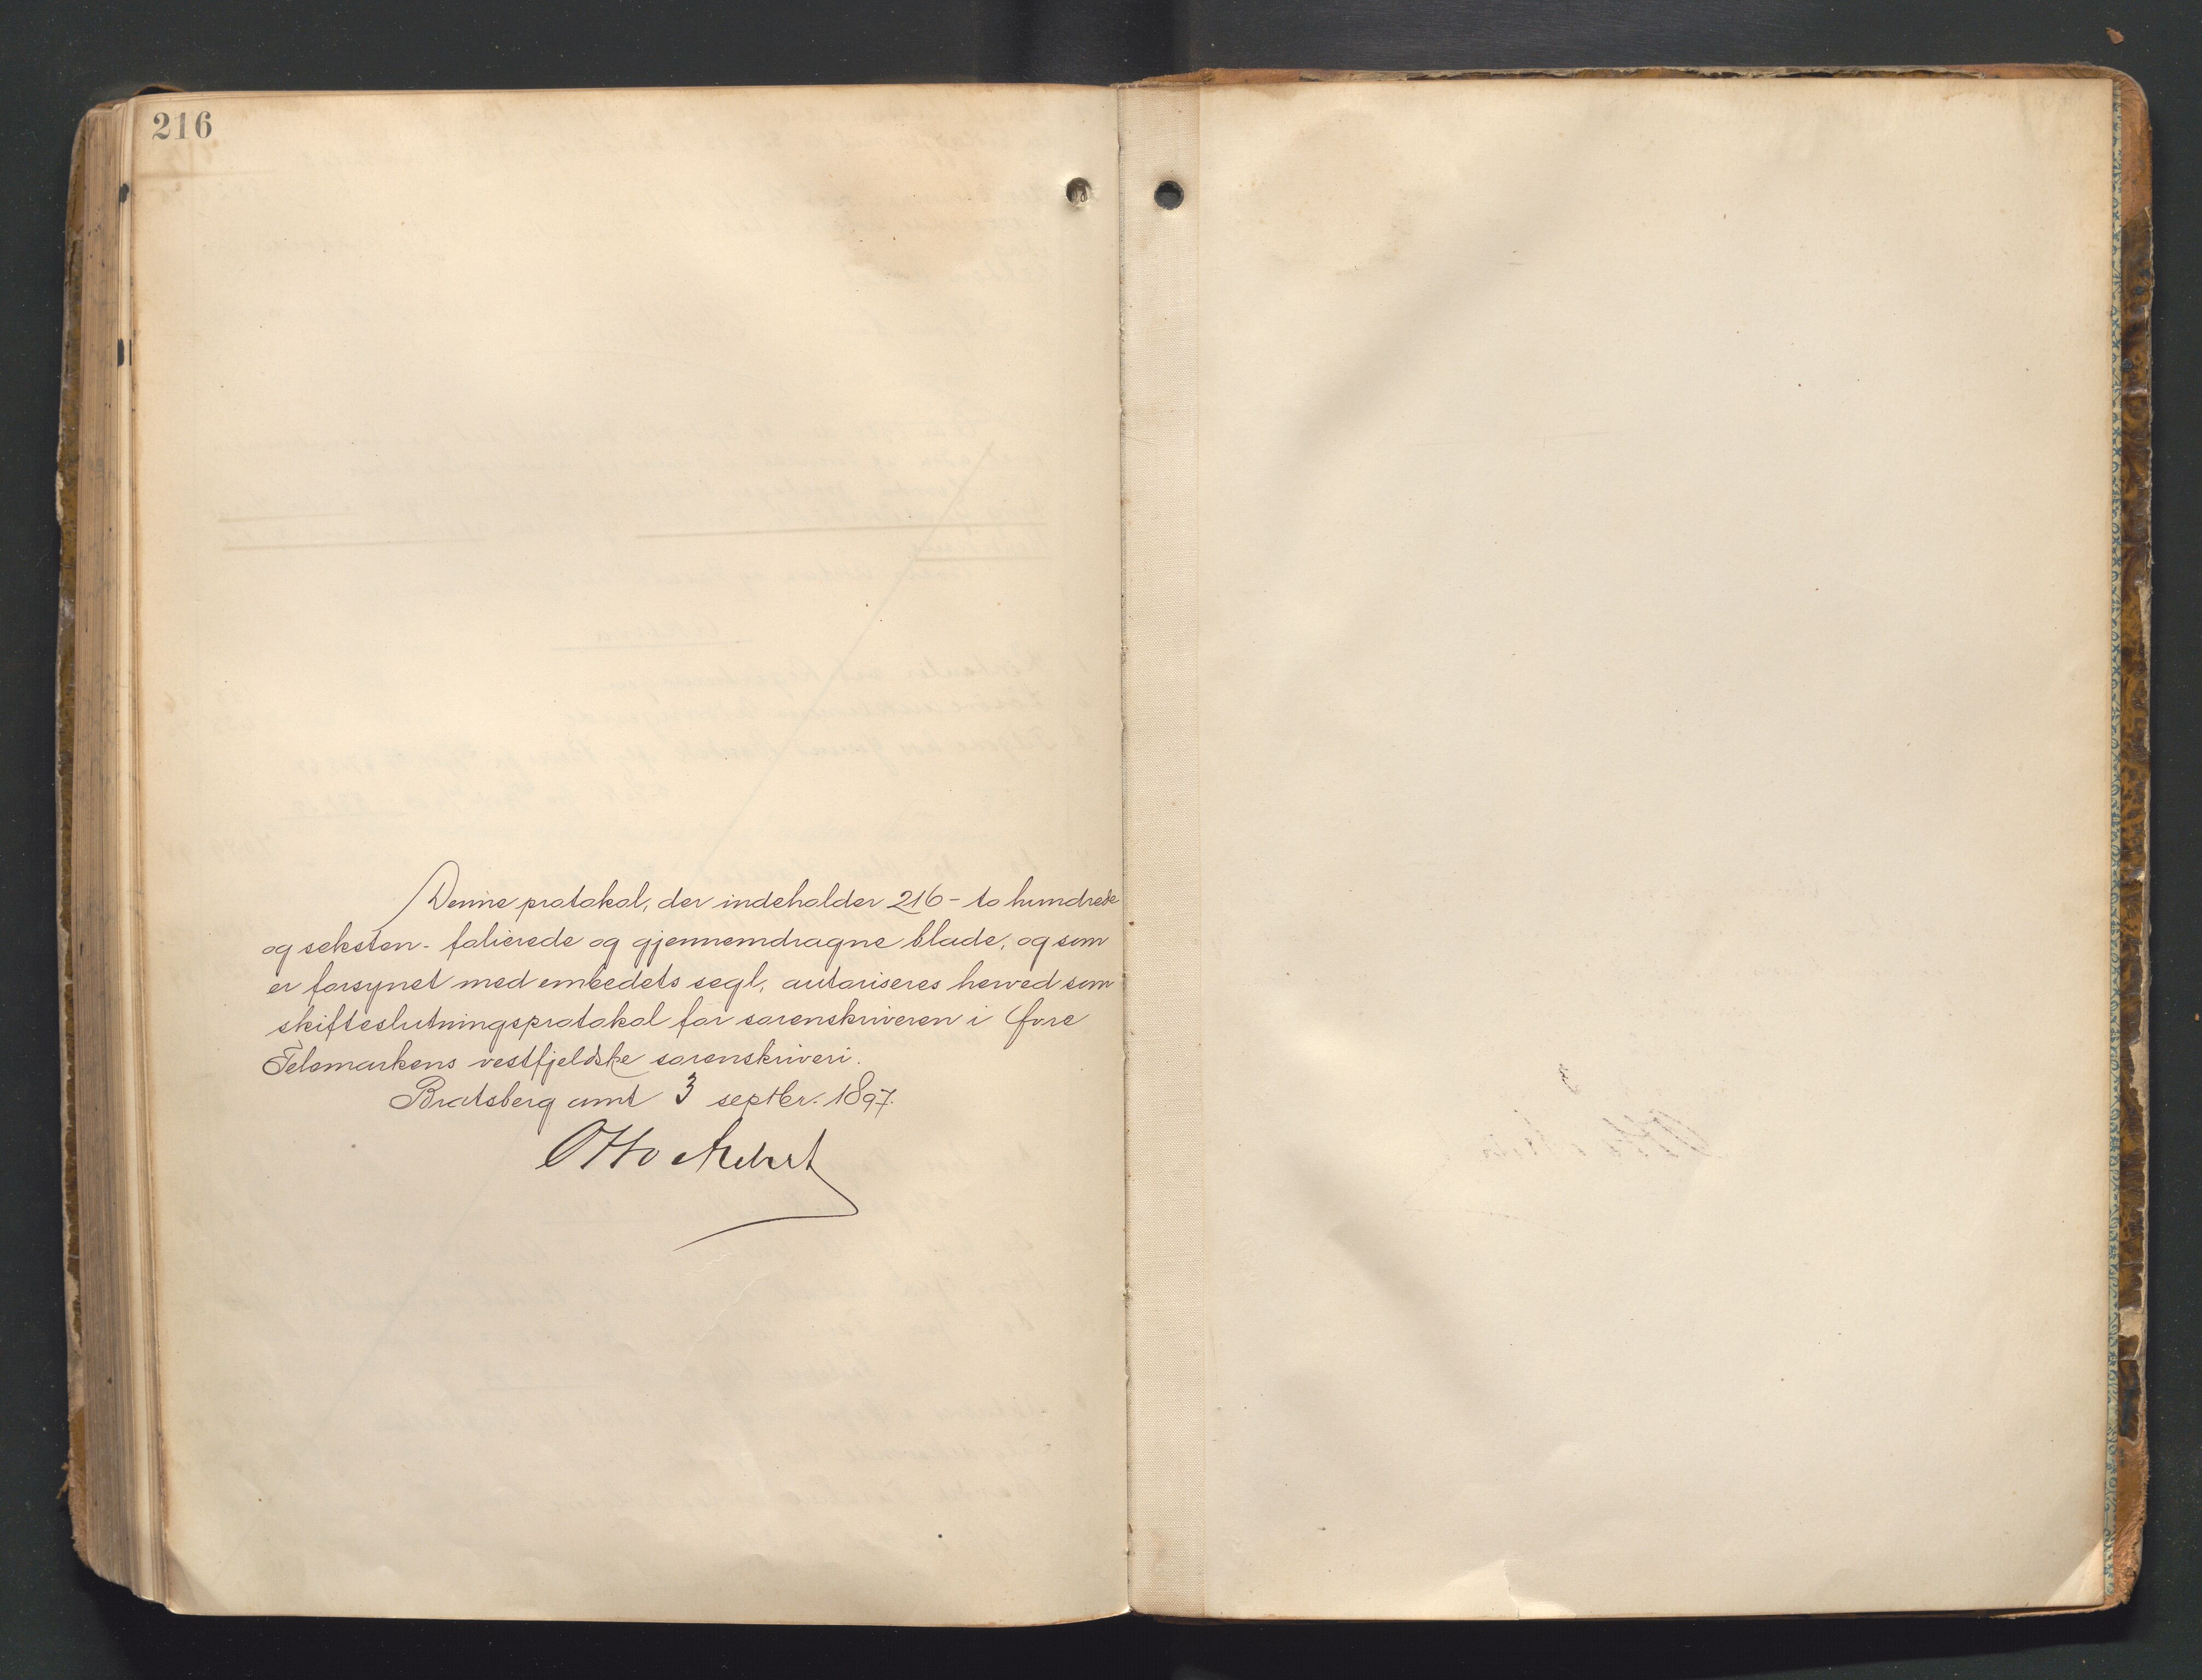 216
Denne protokol, der indeholder 216 - to hundrede
og seksten - folierede og gjennemdragne blade, og som
er forsynet med embedets segl, autoriseres herved som
skifteslutningsprotokol for sorenskriveren i øvre
Telemarkens vestfjeldske sorenskriveri.
Bratsberg amt 3 septbr. 1897.
Otto